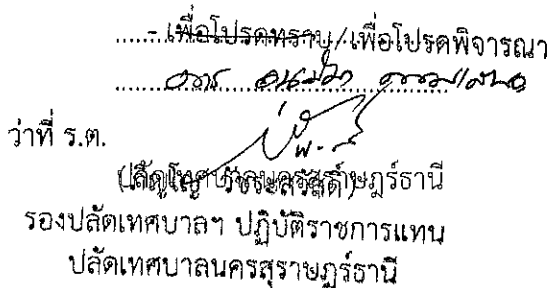 - เพื่อโปรดทราบ/เพื่อโปรดพิจารณา
ควร อนุมัติ ตามเสนอ
ว่าที่ ร.ต.
รองปลัดเทศบาลฯ ปฏิบัติราชการแทน
ปลัดเทศบาลนครสุราษฎร์ธานี